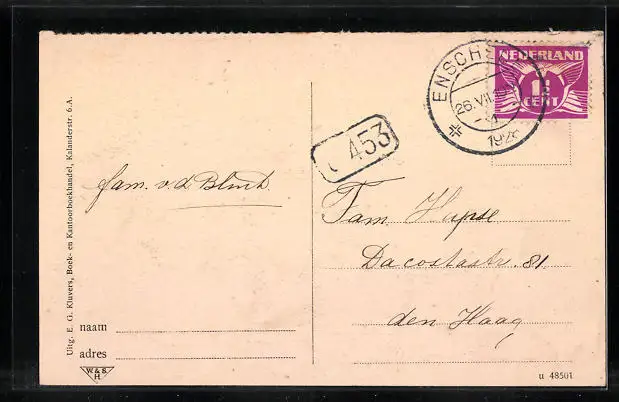 ENSCHS
26.VII
1926
NEDERLAND
1½
CENT
453
fam. v.d. Blink
Fam. Hupse
Dacostastr. 81
den Haag
naam
adres
W&S
H
u 48501
Uitg. E. G. Kluvers, Boek- en Kantoorboekhandel, Kalanderstr. 6.A.